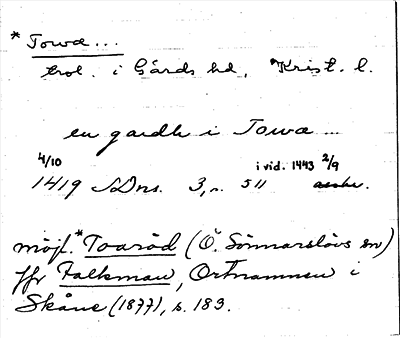 *Towæ...
trol. i Gärds hd, Krist. l.
en gardh i Towæ ...
4/10 i vid. 1443 2/9
1419 SDns. 3, s. 511
möjl. *Toaröd (Ö. Sönnarslövs sn)
jfr Falkman, Ortnamnen i
Skåne (1877), s. 183.